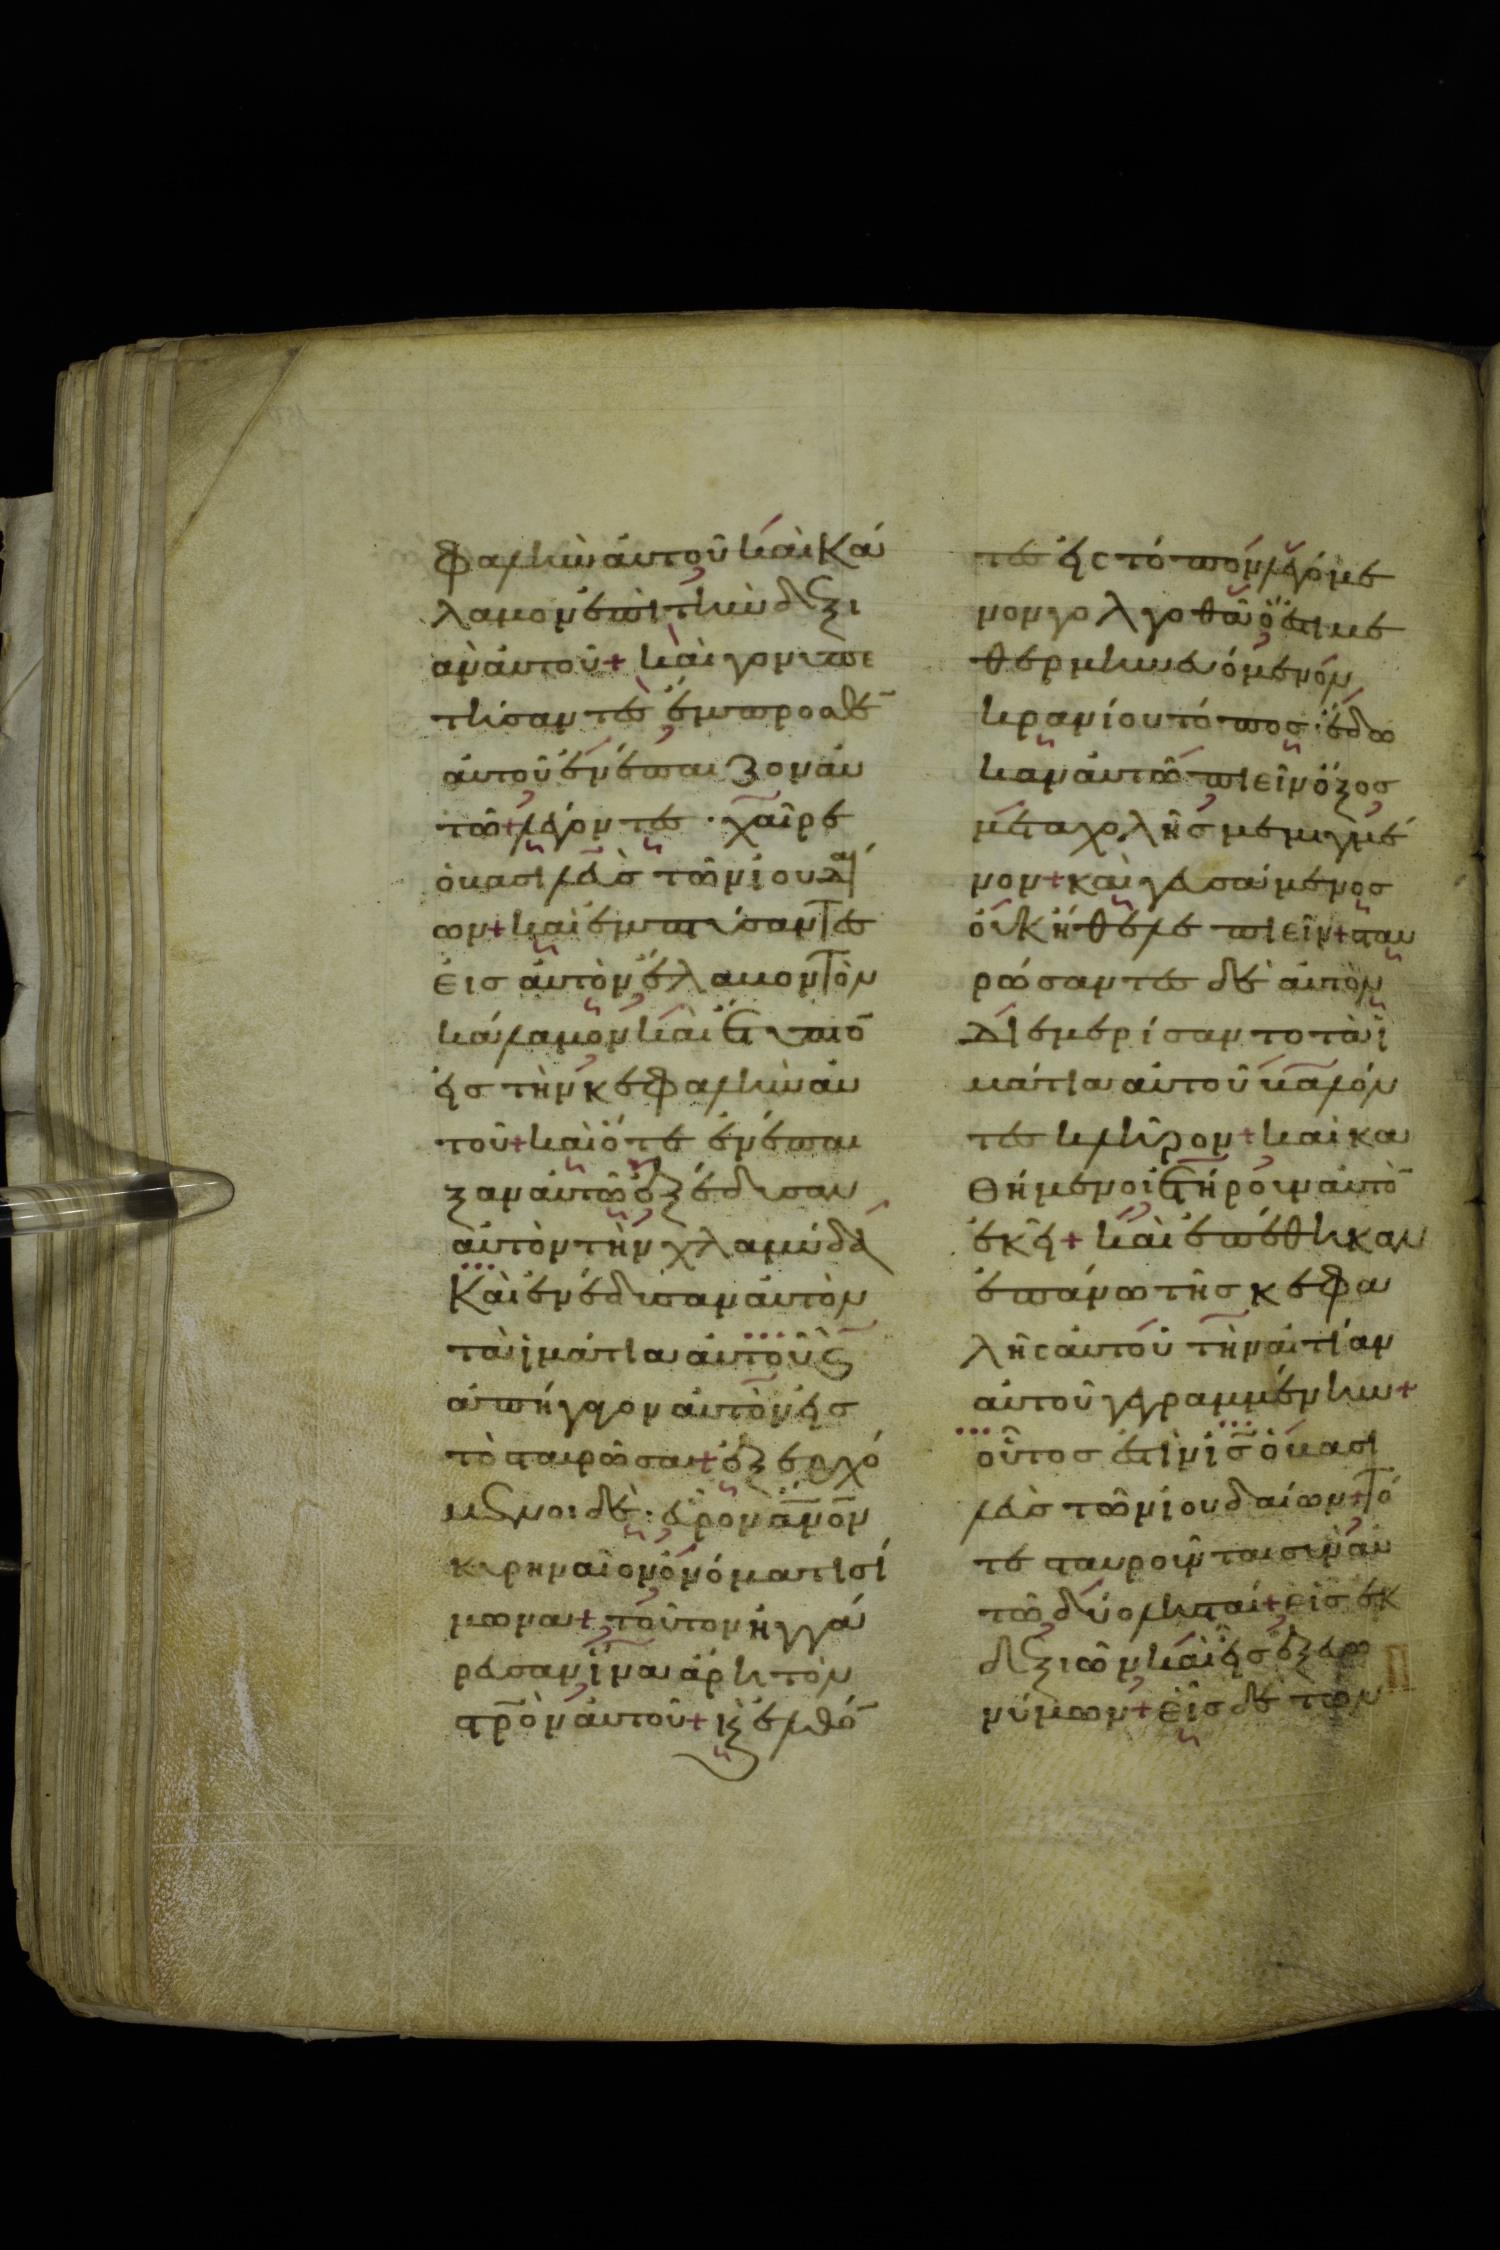 φαλὴν ἀυτοῦ καὶ κά
λαμον ἐπὶ τὴν δεξι
ὰν ἀυτοῦ + καὶ γονυπε
τήσαντὲς ἔμπροσθε̄
ἀυτοῦ ἐνέπαιζον ἀυ
τῶ + λέγοντες · χαῖρε
ὁ βασιλεὺς τῶν ἰουδαί
ων + καὶ ἐμπτύσαντες
εἰς ἀυτὸν ἔλαβον τὸν
κάλαμον καὶ ἔτυπτο̄
εἰς τὴν κεφαλὴν ἀυ
τοῦ + καὶ ὅτε ἐνέπαι
ξαν ἀυτῶ ἐξέδυσαν
ἀυτὸν τὴν χλαμύδα
Καὶ ἐνέδυσαν ἀυτὸν
τὰ ἱμάτια ἀυτοῦ ϗ
ἀπήγαγον ἀυτὸν εἰς
τὸ σταυρῶσαι + ἐξερχό
μενοι δὲ · εὗρον ἄν̄ο̄ν
κυρηναῖον ὀνόματι σί
μωνα + τοῦτον ἠγγά
ρευσαν ἵνα ἄρη τὸν
στ̄ρ̄ὸν ἀυτοῦ + ϗ ἐλθό̄
τες εἰς τόπον λεγόμε
νον γολγοθᾶ ὅ ἐστι με
θερμηνευόμενον
κρανίου τόπος · ἔδω
καν ἀυτῶ πιεῖν ὄξος
μετα χολῆς μεμιγμέ
νον + καὶ γευσάμενος
ὀυκ ἤθελε πιεῖν + σταυ
ρώσαντες δὲ ἀυτὸν
Διεμερίσαντο τὰ ἱ
μάτια ἀυτοῦ βαλόν
τες κλῆρον + καὶ κα
θήμενοι ἐτήρουν ἀυτὸ̄
ἐκεῖ + καὶ ἐπέθηκαν
ἐπάνω τῆς κεφα
λῆς ἀυτοῦ τὴν ἀιτίαν
ἀυτοῦ γεγραμμένην +
οὗτος ἐστὶν ἰ̄ς̄ ὁ βασι
λεὺς τῶν ἰουδαίων + τό
τε σταυροῦνται σὺν ἀυ
τῶ δύο λησταί + εἷς ἐκ
δεξιῶν καὶ εἷς ἐξ ευω
νύμων + εἷς δὲ τῶν